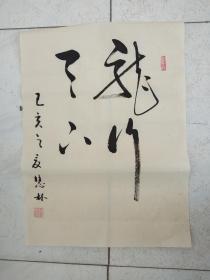 龍行
天下
乙亥之夏慧林